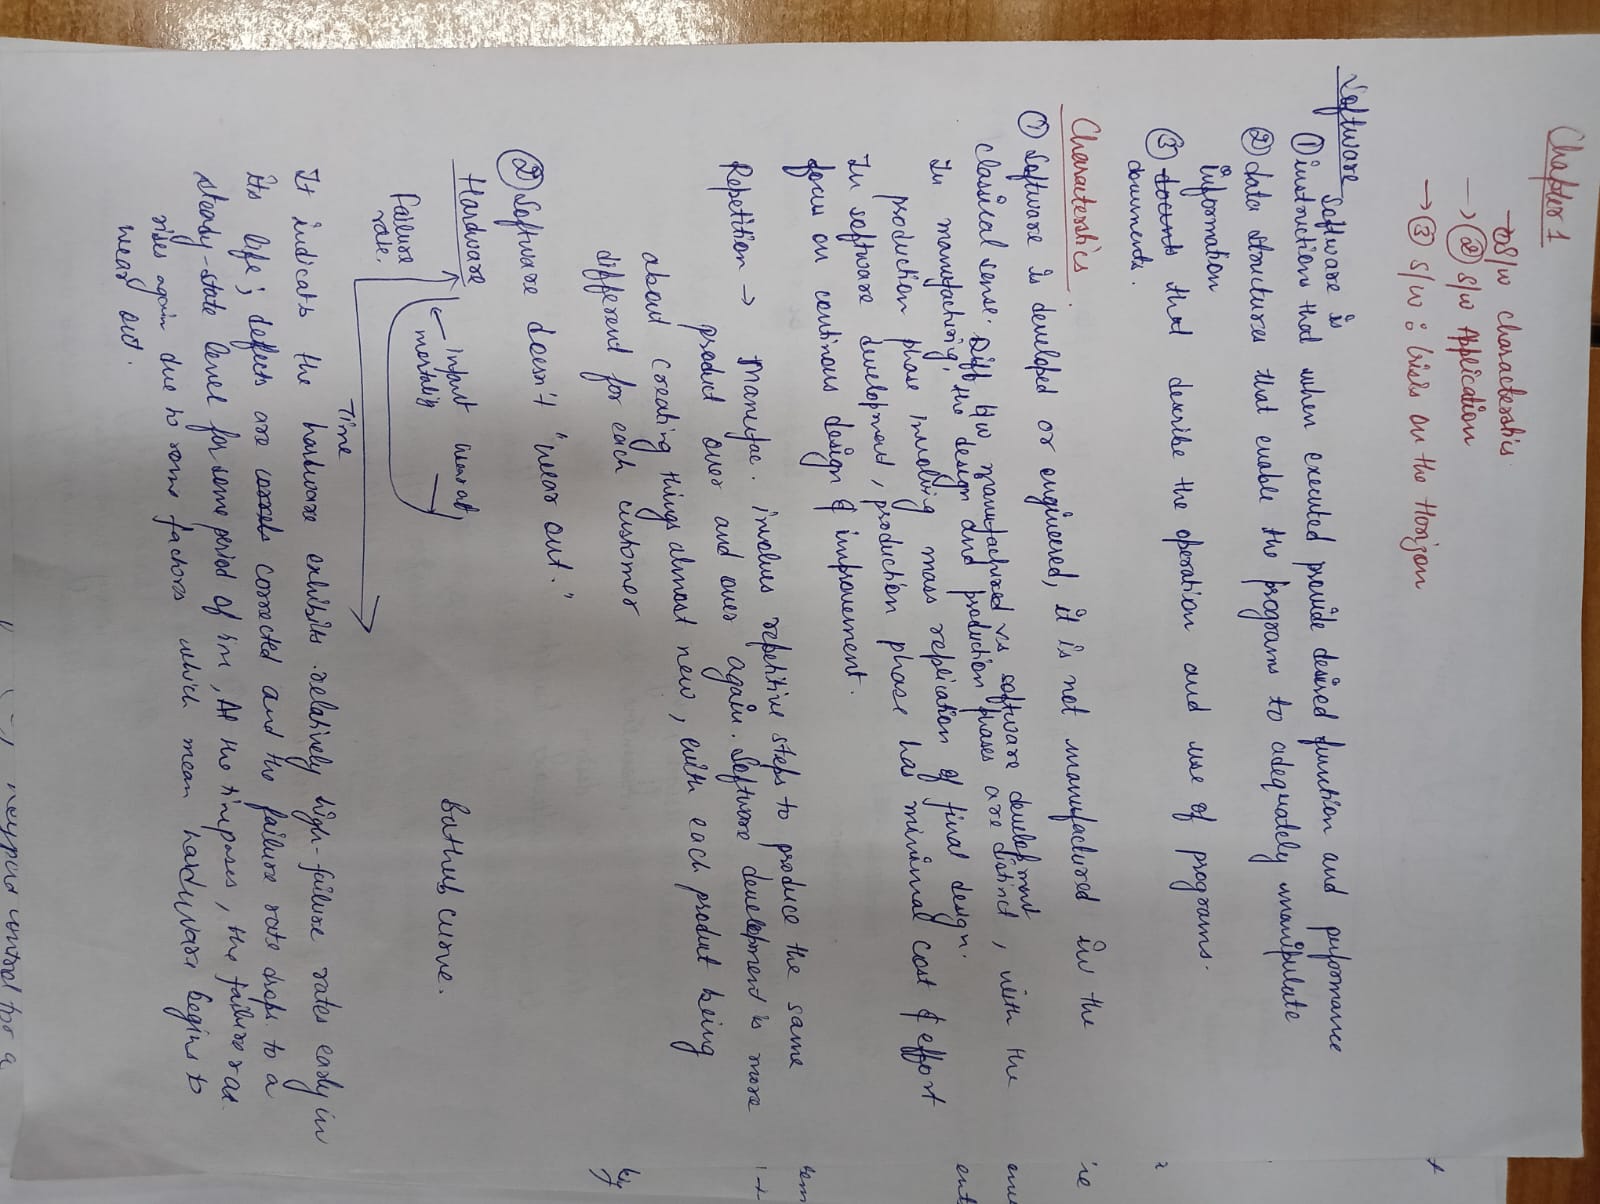 Chapter 1
→ ① S/w characterstics
→ ② S/w Application
→ ③ S/w : Crisis on the Horizon
Software
Software is
① instructions that when executed provide desired function and performance
② data structures that enable the programs to adequately manipulate
information
③ that describe the operation and use of programs.
documents.
Characterstics
① Software is developed or engineered, it is not manufactured in the
classical sense. Diff b/w manufactured vs software development
In manufacturing, the design and production phases are distinct, with the
production phase involving mass replication of final design.
In software development, production phase has minimal cost & effort
focus on continous design & improvement.
Repetition → Manufac. involves repetitive steps to produce the same
product over and over again. Software development is more
about creating things almost new, with each product being
different for each customer
② Software doesn't "wear out."
Hardware
Infant wear out
mortality
Bathub curve.
Failure
rate.
Time
It indicats the hardware exhibits relatively high-failure rates early in
its life; defects are corrected and the failure rate drops to a
steady-state level for some period of time, As the time passes, the failure rate
rises again due to some factors which mean hardware begins to
wear out.
Keypad control for a